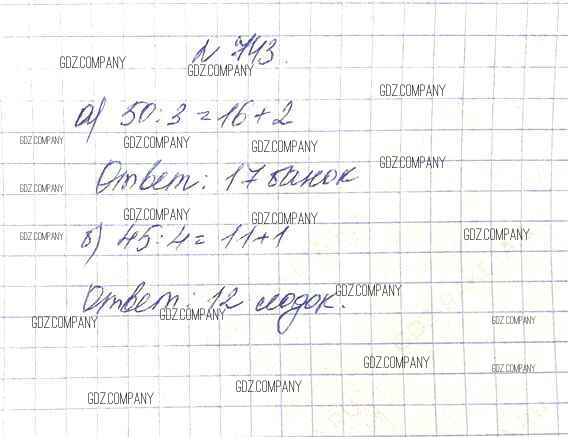 N 743.
GDZ.COMPANY
GDZ.COMPANY
GDZ.COMPANY
а) 50:3=16+2
GDZ.COMPANY
GDZ.COMPANY
GDZ.COMPANY
GDZ.COMPANY
Ответ: 17 банок
GDZ.COMPANY
GDZ.COMPANY
GDZ.COMPANY
б) 45:4= 11+1
GDZ.COMPANY
GDZ.COMPANY
Ответ: 12 лодок.
GDZ.COMPANY
GDZ.COMPANY
GDZ.COMPANY
GDZ.COMPANY
GDZ.COMPANY
GDZ.COMPANY
GDZ.COMPANY
GDZ.COMPANY